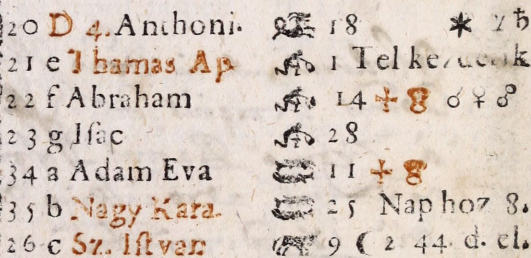 20 D 4. Anthoni. 18 ⚹ ♃ ♄
21 e Thamas Ap. 1 Tel kezdetik
22 f Abraham 14 ☩ ☌ ♀ ♂
23 g Iſac 28
34 a Adam Eva 11 ☩
35 b Nagy Kara. 25 Nap hoz 8.
26 c Sz. Iſtvan 9 ☾ 2 44. d. el.